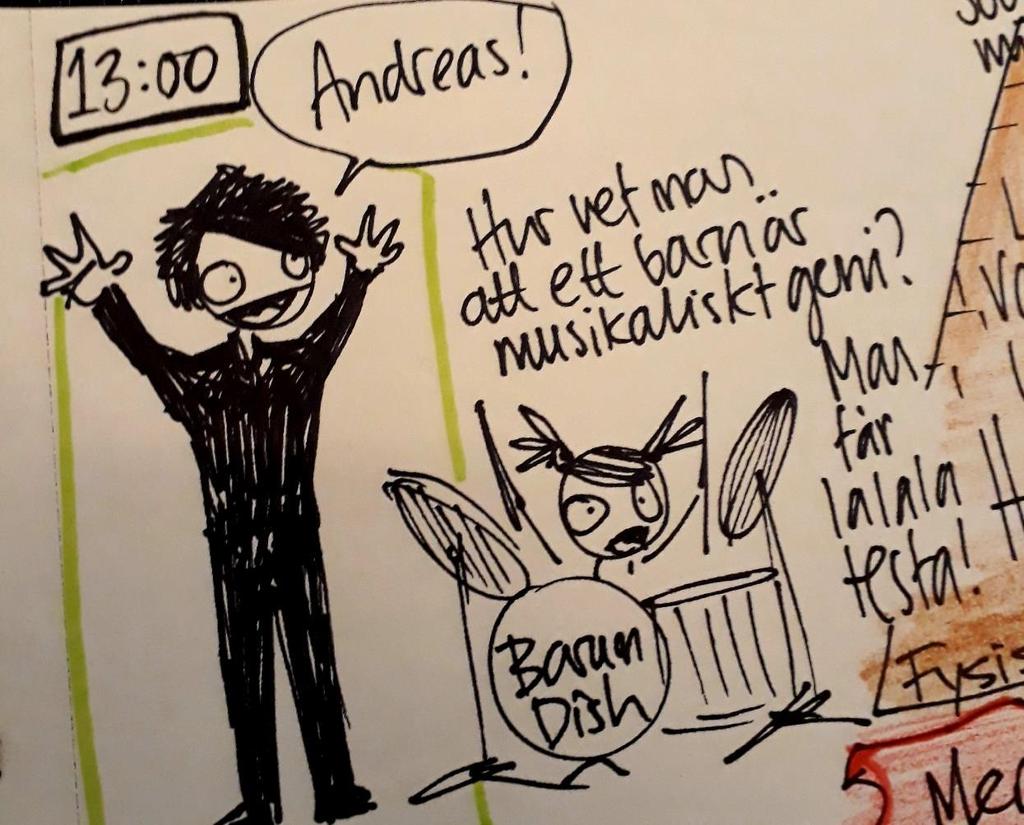 13:00
Andreas!
Hur vet man
att ett barn är
musikaliskt geni?
Man
får
lalala
testa!
Barun
Dish
Fysis
Mer